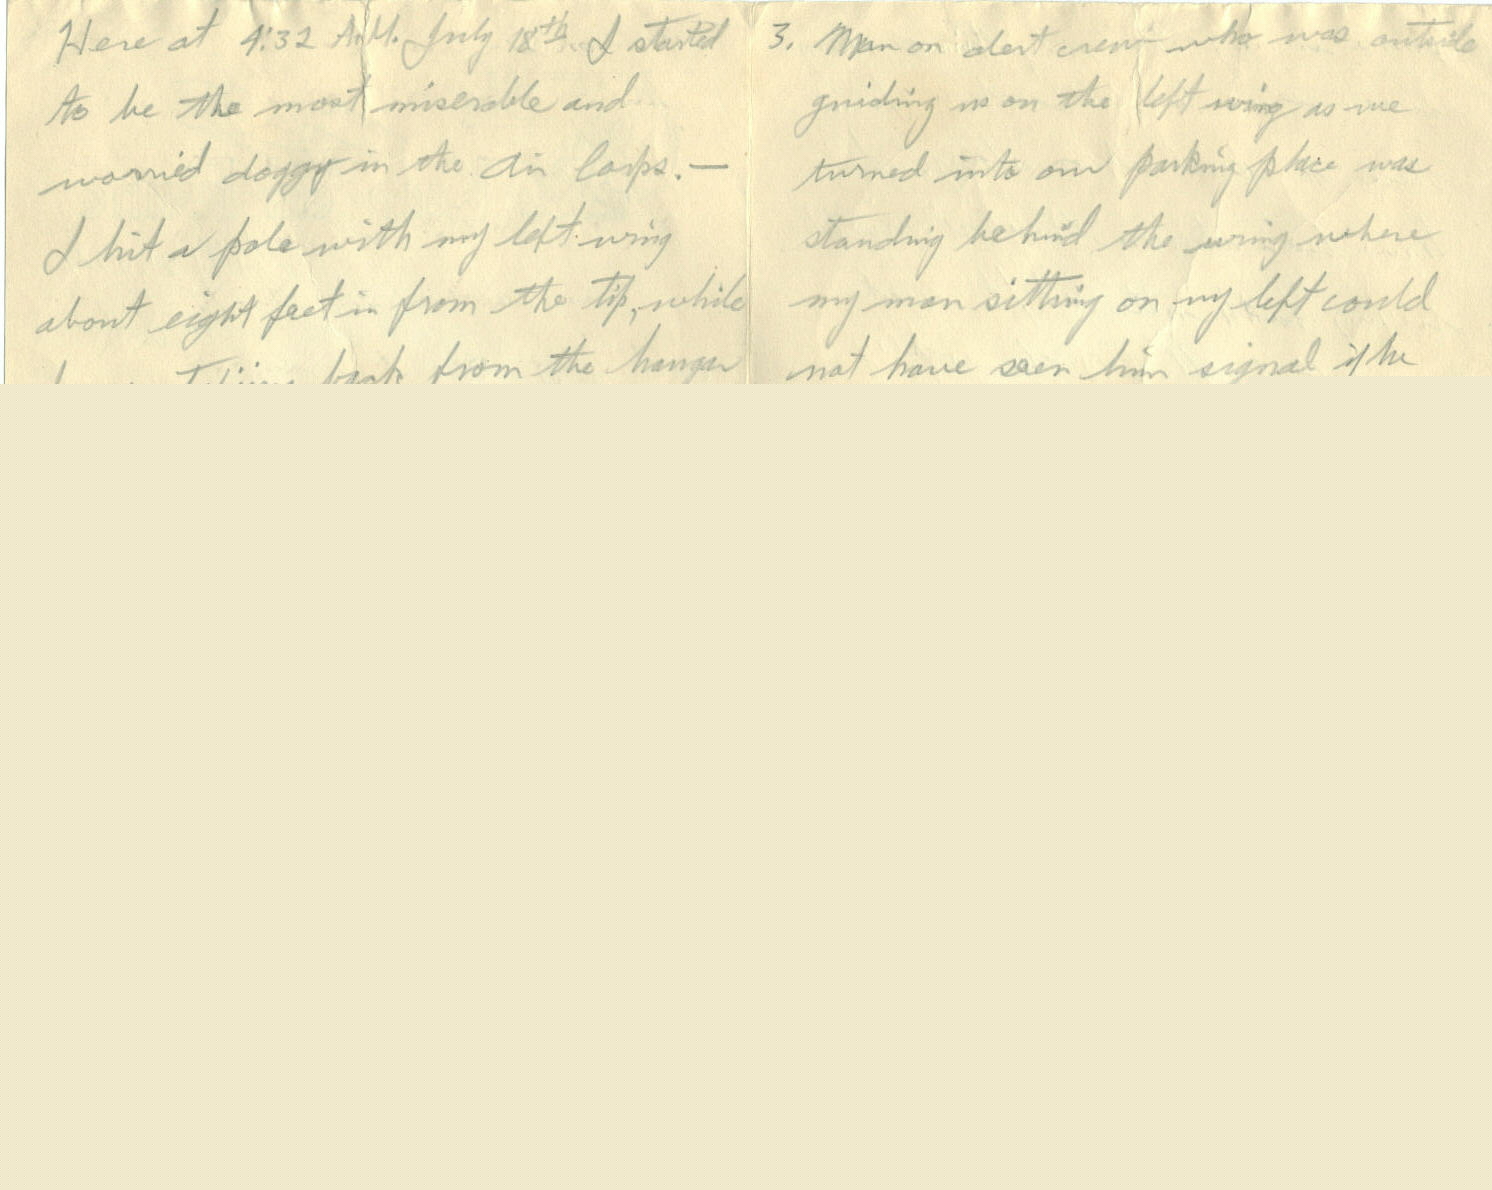 Here at 4:32 A.M. July 18th I started
to be the most miserable and
worried doggy in the Air Corps. —
I hit a pole with my left wing
about eight feet in from the tip, while
back from the hangar
3. Man on alert crew who was outside
guiding us on the left wing as we
turned into our parking place was
standing behind the wing where
my man sitting on my left could
not have seen him signal if he